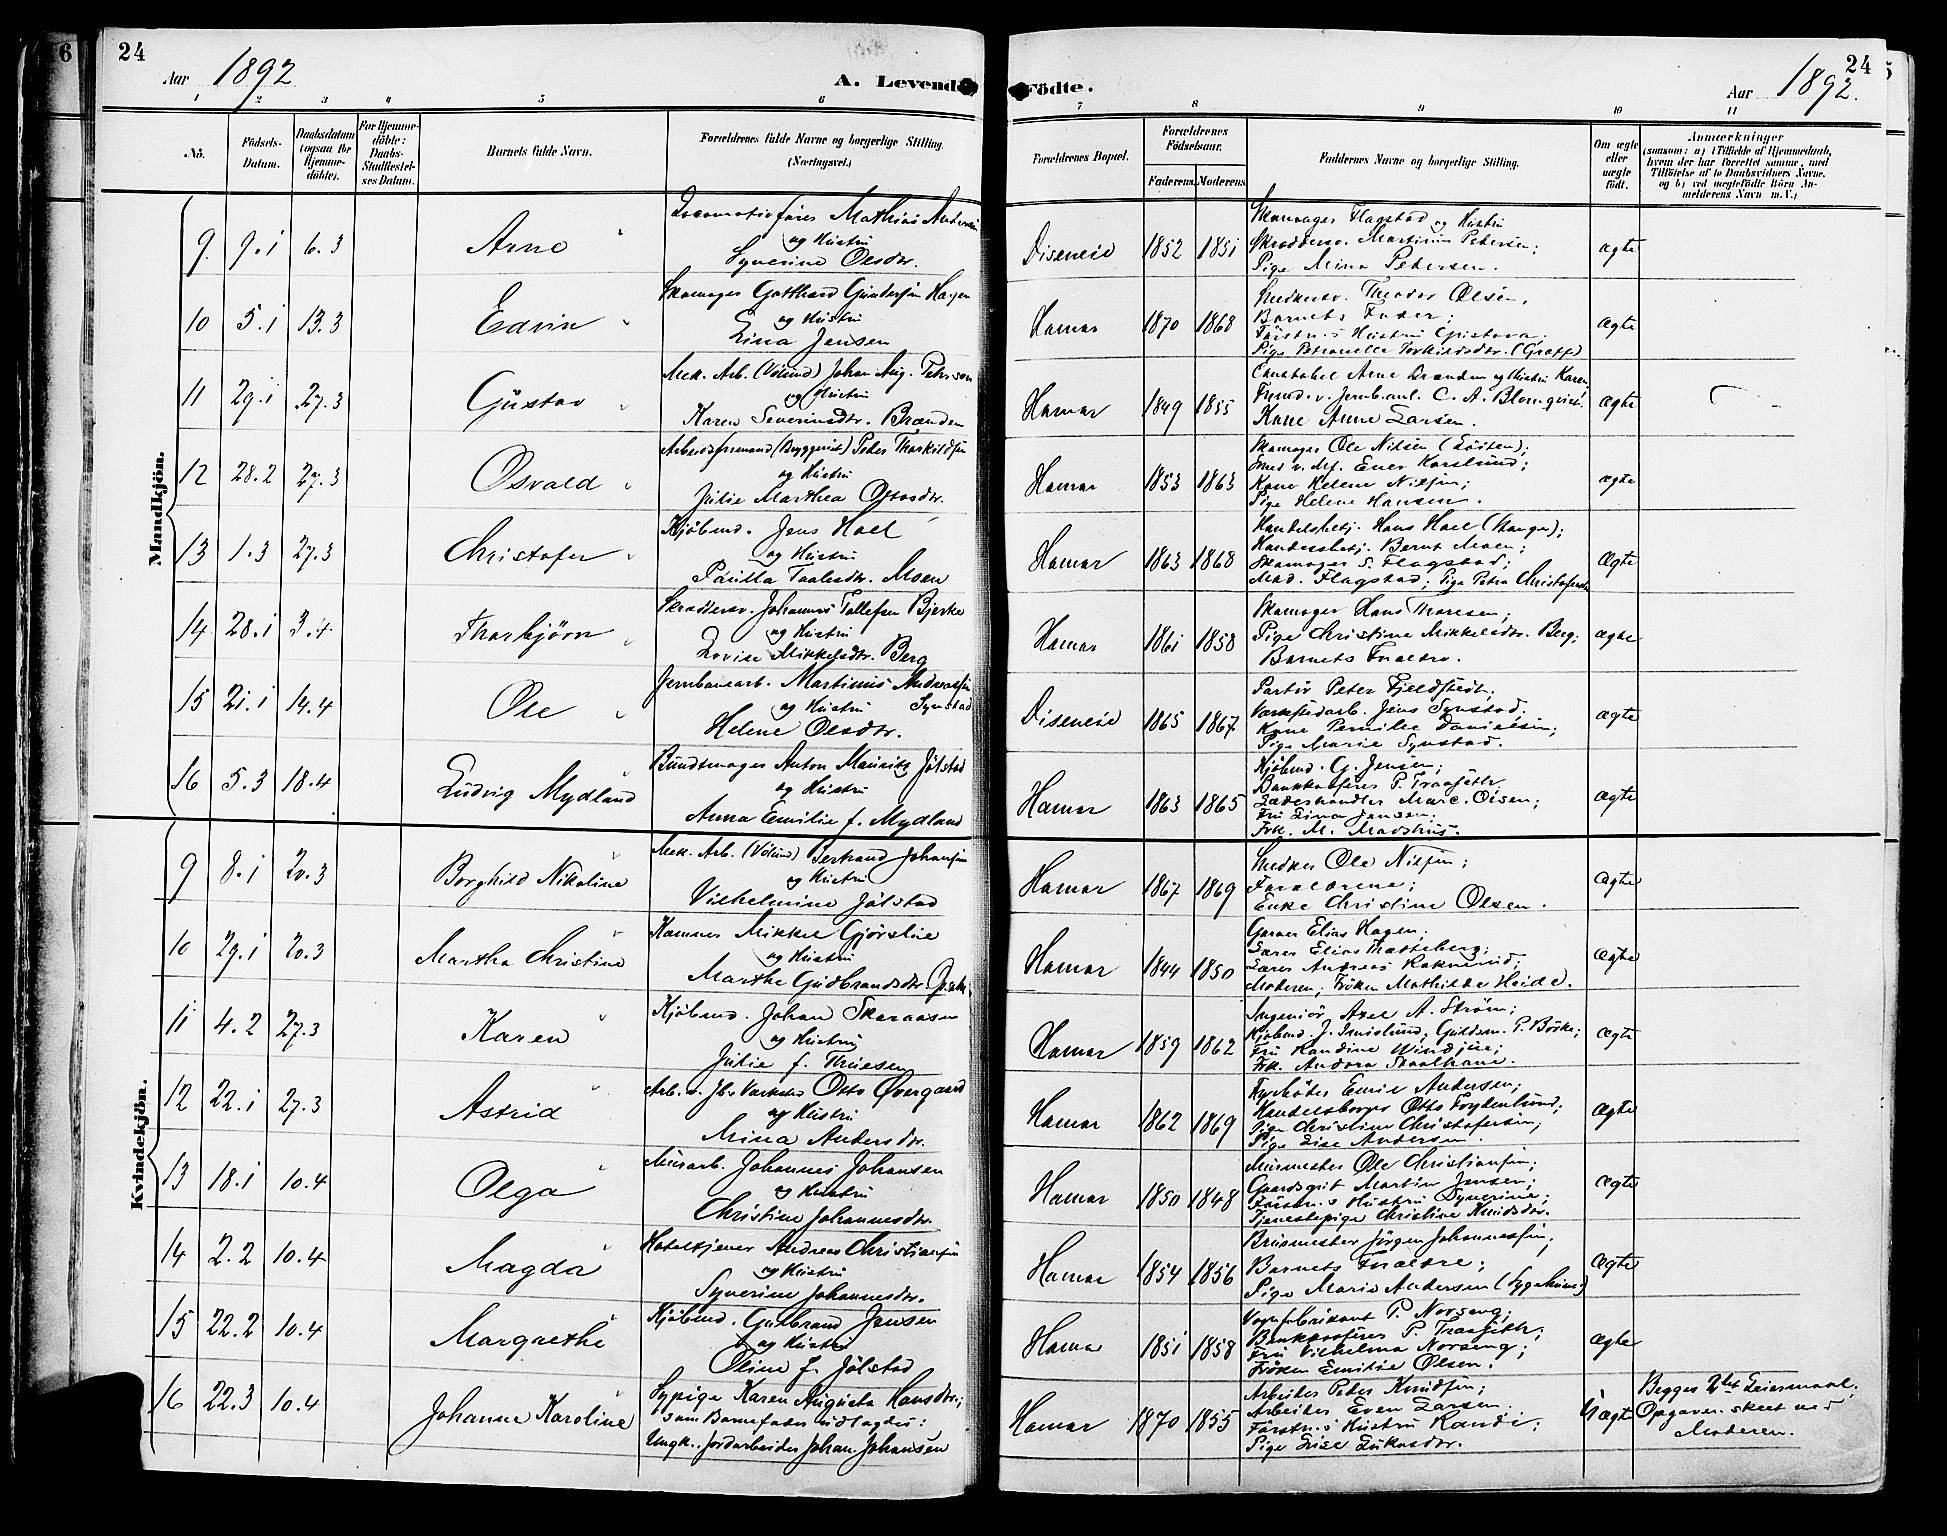 24
Aar 1892
A. Levende
Födte.
Aar 1892.
24
1 2 3 4 5 6 7 8 9 10 11
No.
Födsels-
Datum.
Daabsdatum
(ogsaa for
Hjemme-
döbte).
For Hjemme-
döbte:
Daabs-
Stadfæstel-
ses Datum.
Barnets fulde Navn.
Forældrenes fulde Navne og borgerlige Stilling.
(Næringsvei.)
Forældrenes Bopæl.
Forældrenes
Födselsaar.
Faderens. Moderens.
Faddernes Navne og borgerlige Stilling.
Om ægte
eller
uægte
födt.
Anmærkninger
(saasom: a) i Tilfælde af Hjemmedaab,
hvem der har forrettet samme, med
Tilföielse af to Daabsvidners Navne,
og b) ved uægtefödte Börn An-
melderens Navn m.V.)
Mandkjön.
9. 9.1 6.3 Arne
Locomotivförer Mathias Andersen
og Hustru
Syverine Olsdtr.
Diseneie 1852 1851
Skomager Flagstad og Hustru
Skræddersv. Martinus Petersen;
Pige Mina Petersen.
ægte
10 5.1 13.3 Edvin
Skomager Gotthard Gundersen Hagen
og Hustru
Lina Jensen
Hamar 1870 1868
Snedkersv. Theodor Olsen,
Barnets Fader;
Förstn.s Hustru Gustava;
Pige Petronelle Torkildsdtr.
ægte
11 29.1 27.3 Gustav
Mek. Arb. (Vølund) Johan Aug. Peterson
og Hustru
Karen Severinsdtr. Brænden
Hamar 1849 1855
Constabel Arne Brænden og Hustru Karen,
C. A. Blomqvist.
Kone Anne Larsen.
ægte
12 28.2 27.3 Osvald
Arbeidsformand (Bryggeriet) Peter Thorkildsen
og Hustru
Julie Marthea Olsdtr.
Hamar 1853 1863
Skomager Ole Nilsen (Løiten);
Kone Helene Nilsen;
Pige Helene Hansen.
ægte
13 1.3 27.3 Christofer
Kjøbmd. Jens Hoel
og Hustru
Paulla Taalesdtr. Moen
Hamar 1863 1868
Handelsbetj. Hans Hoel (Stange);
Handelsbetj. Bernt Moen;
Skomager S. Flagstad;
Mad. Flagstad; Pige Petra Christofersen
Ægte
14 28.1 3.4 Thorbjørn
Skræddersv. Johannes Tollefsen Bjerke
og Hustru
Lovise Mikkelsdtr. Berg
Hamar 1861 1858
Skomager Hans Thoresen;
Pige Christine Mikkelsdtr. Berg;
Barnets Forældre.
ægte
15 21.1 14.4 Ole
Jernbanearb. Martinus Andreassen
og Hustru Synstad
Helene Olsdtr.
Diseneie 1865 1867
Peter Fjeldstedt;
Værkstedarb. Jens Synstad;
Kone Pernille Danielsen;
Pige Marie Synstad.
ægte
16 5.3 18.4 Ludvig Mydland
Bundtmager Anton Mauritz Jølstad
og Hustru
Anna Emilie f. Mydland
Hamar 1863 1865
Kjøbmd. G. Jensen;
Bankkasserer P. Traaseth;
Læderhandler Marc. Olsen;
Fru Lina Jensen;
Frk. M. Mads­hus.
ægte
Kvindekjön.
9 8.1 20.3 Borghild Nikoline
Mek. Arb. (Vølund) Bertrand Johansen
og Hustru
Vilhelmine Jølstad
Hamar 1867 1869
Snedker Ole Nilsen;
Forældrene;
Enke Christine Olsen.
ægte
10 29.1 20.3 Martha Christine
Kæmner Mikkel Gjørslie
og Hustru
Marthe Gudbrandsdtr.
Hamar 1844 1850
Garver Elias Hagen;
Lærer Elias Trætteberg;
Lærer Andreas
Moderen; Frøken Mathilde Heide.
ægte
11 4.2 27.3 Karen
Kjøbmd. Johan Skaraasen
og Hustru
Julie f. Thuesen
Hamar 1859 1862
Ingeniør Axel A. Strøm;
Kjøbmd. J. Smislund; Guldsm. P. Börke;
Fru Kandine Windjue;
Frk. Andora Staalhane.
ægte
12 22.1 27.3 Astrid
Arb. v. Jb. Værksted Otto Øvergaard
og Hustru
Mina Andersdtr.
Hamar 1862 1869
Fyrbøder Emil Andersen;
Handelsborger Otto Frydenlund;
Pige Christine Christofersen;
Pige Lise Andersen.
ægte
13 18.1 10.4 Olga
Murarb. Johannes Johansen
og Hustru
Christine Johannesdtr.
Hamar 1850 1848
Murmester Ole Christiansen;
Gaardsgut Martin Jensen;
Förstn.s Hustru Syverine;
Tjenestepige Christine Knudsdtr.
ægte
14 2.2 10.4 Magda
Hotelkjener Andreas Christiansen
og Hustru
Syverine Johannesdtr.
Hamar 1854 1856
Murmester Jørgen Johannessen;
Barnets Forældre;
Pige Marie Andersen (Sygehuset)
ægte
15 22.2 10.4 Margrethe
Kjøbmd. Gulbrand Jensen
og Hustru
Oline f. Jølstad
Hamar 1851 1858
Vognfabrikant P. Norseng;
Bankkasserer P. Traaseth;
Fru Vilhelma Norseng;
Frøken Emilie Olsen.
ægte
16 22.3 10.4 Johanne Karoline
Sypige Karen Augusta Hansdtr.;
som Barnefader udlagdes:
Ungk., Jordarbeider Johan Johansen
Hamar 1870 1855
Arbeider Peter Knudsen;
Arbeider Even Larsen;
Förstn.s Hustru Randi;
Pige Lise Lukasdtr.
Uægte
Begges 2det Leiermaal.
Opgaven skeet ved
Moderen.